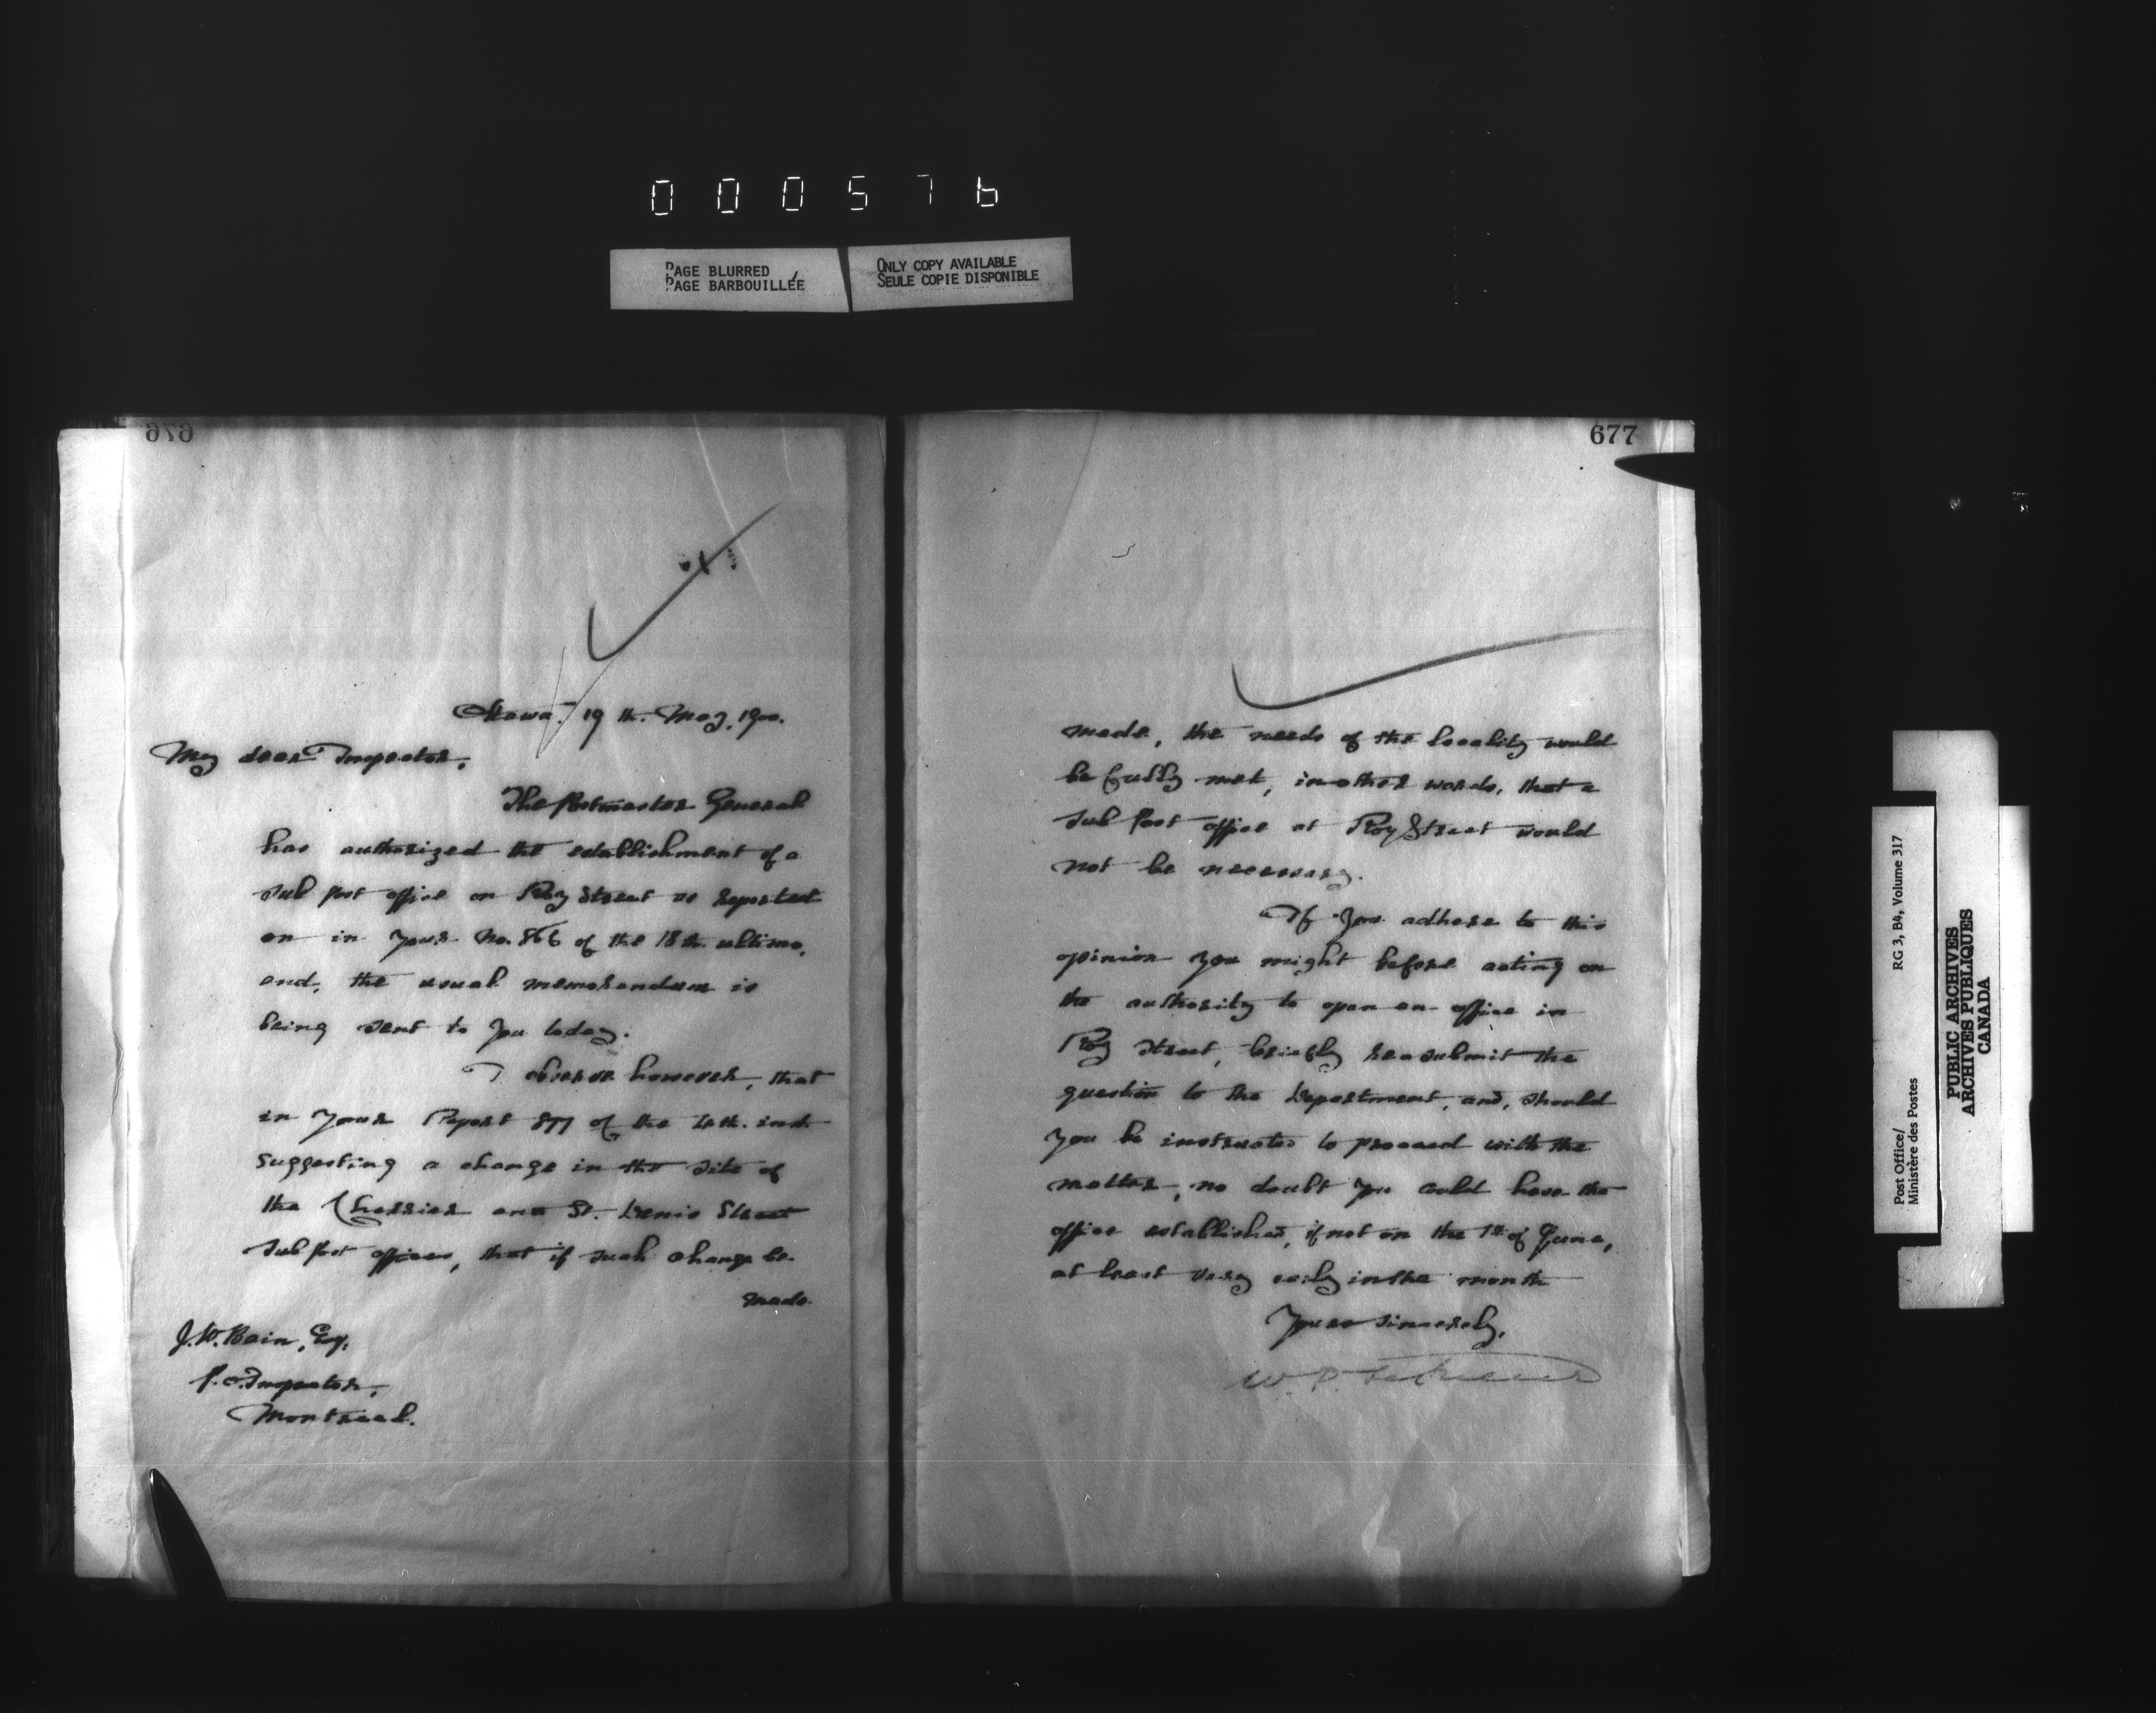 000576
PAGE BLURRED
PAGE BARBOUILLÉE
ONLY COPY AVAILABLE
SEULE COPIE DISPONIBLE
676
Ottawa. 19th. May, 1900.
My dear Inspector,
The Postmaster General
has authorized the establishment of a
Sub post office on Roy Street as reported
on in your No. 866 of the 18th. ultimo,
and, the usual memorandum is
being sent to you today.
I observe however, that
in your Report 877 of the 4th. inst.
suggesting a change in the site of
the Cherrier and St. Denis Street
Sub post offices, that if such change be
made
J.W. Bain, Esq.,
P.O. Inspector,
Montreal.
677
made, the needs of the locality would
be fully met, in other words, that a
Sub Post office at Roy Street would
not be necessary.
If you adhere to this
opinion you might before acting on
the authority to open an office in
Roy Street, briefly re-submit the
question to the Department, and, should
you be instructed to proceed with the
matter, no doubt you could have the
office established, if not on the 1st of June,
at least very early in the month
Yours sincerely,
W. D.
Post Office/
Ministère des Postes
RG 3, B4, Volume 317
PUBLIC ARCHIVES
ARCHIVES PUBLIQUES
CANADA